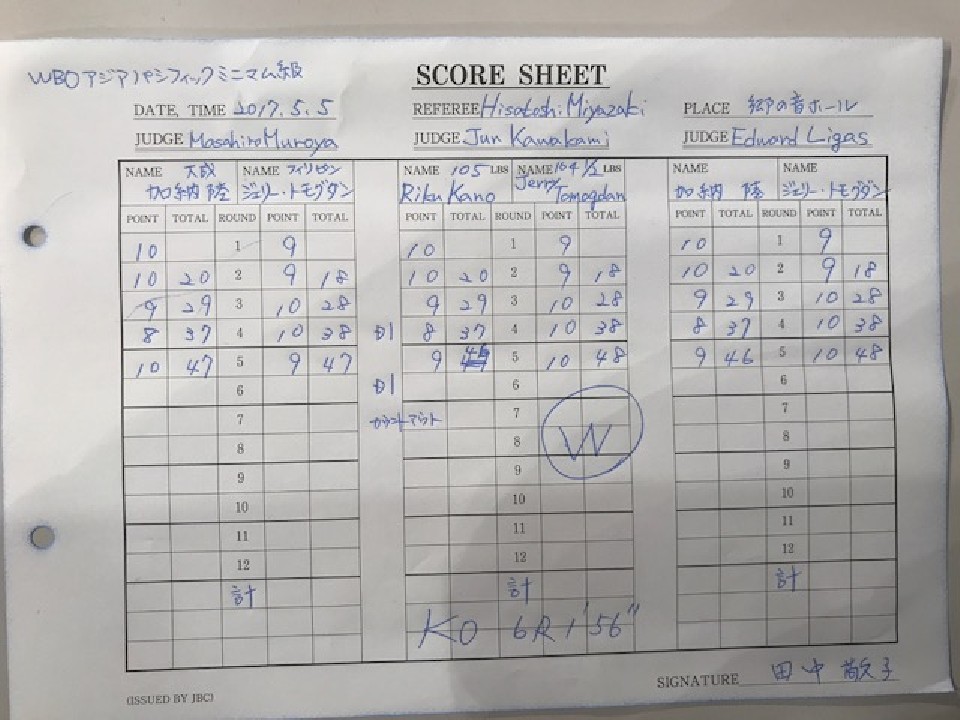 WBOアジアパシフィックミニマム級
SCORE SHEET
DATE, TIME 2017.5.5 REFEREE Hisatoshi Miyazaki PLACE 郷の音ホール
JUDGE Masahiro Muroya JUDGE Jun Kawakami JUDGE Edward Ligas
NAME 大成 NAME フィリピン NAME 105 LBS NAME 104 1/2 LBS NAME NAME
加納 陸 ジェリー・トモグダン Riku Kano Jerry Tomogdan 加納 陸 ジェリー・トモグダン
POINT TOTAL ROUND POINT TOTAL POINT TOTAL ROUND POINT TOTAL POINT TOTAL ROUND POINT TOTAL
10 1 9 10 1 9 10 1 9
10 20 2 9 18 10 20 2 9 18 10 20 2 9 18
9 29 3 10 28 9 29 3 10 28 9 29 3 10 28
8 37 4 10 38 D1 8 37 4 10 38 8 37 4 10 38
10 47 5 9 47 9 46 5 10 48 9 46 5 10 48
6 D1 6 6
7 カウントアウト 7 7
8 8 W 8
9 9 9
10 10 10
11 11 11
12 12 12
計 計 計
KO 6R 1'56"
SIGNATURE 田中 敬子
(ISSUED BY JBC)